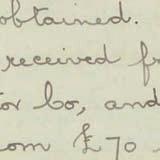 obtained.
received
or Co, and
om £70